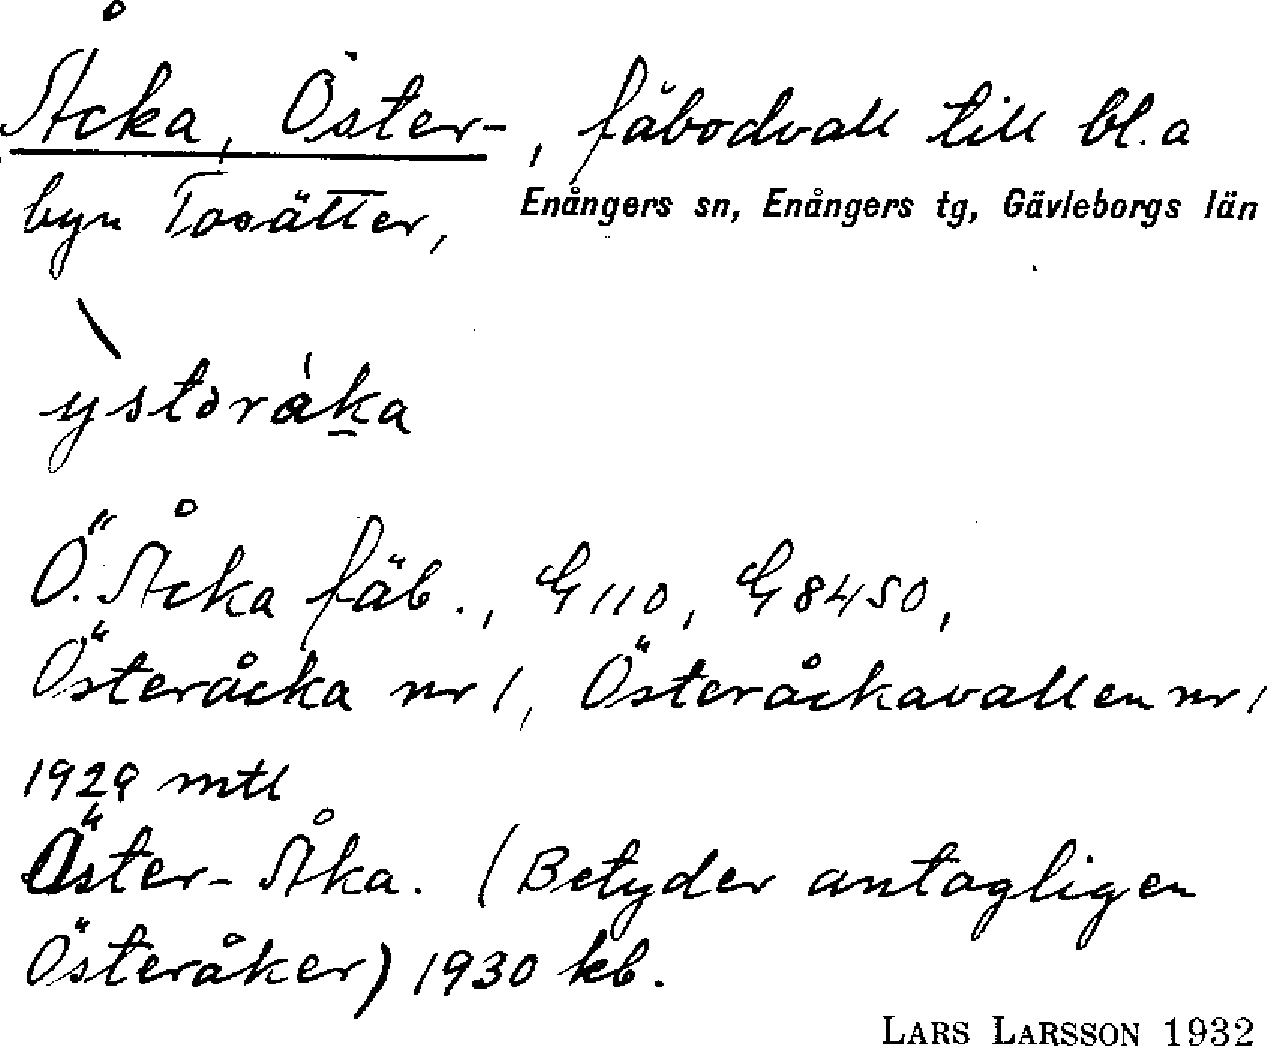 Åcka, Öster-, fäbodvall till bl. a
byn Tosätter, Enångers sn, Enångers tg, Gävleborgs län
ystəråka
Ö. Åcka fäb., G 110, G 8450,
Österåcka nr 1, Österåckavallen nr 1
1929 mtl
Öster-Åka. (Betyder antagligen
Österåker) 1930 kb.
LARS LARSSON 1932